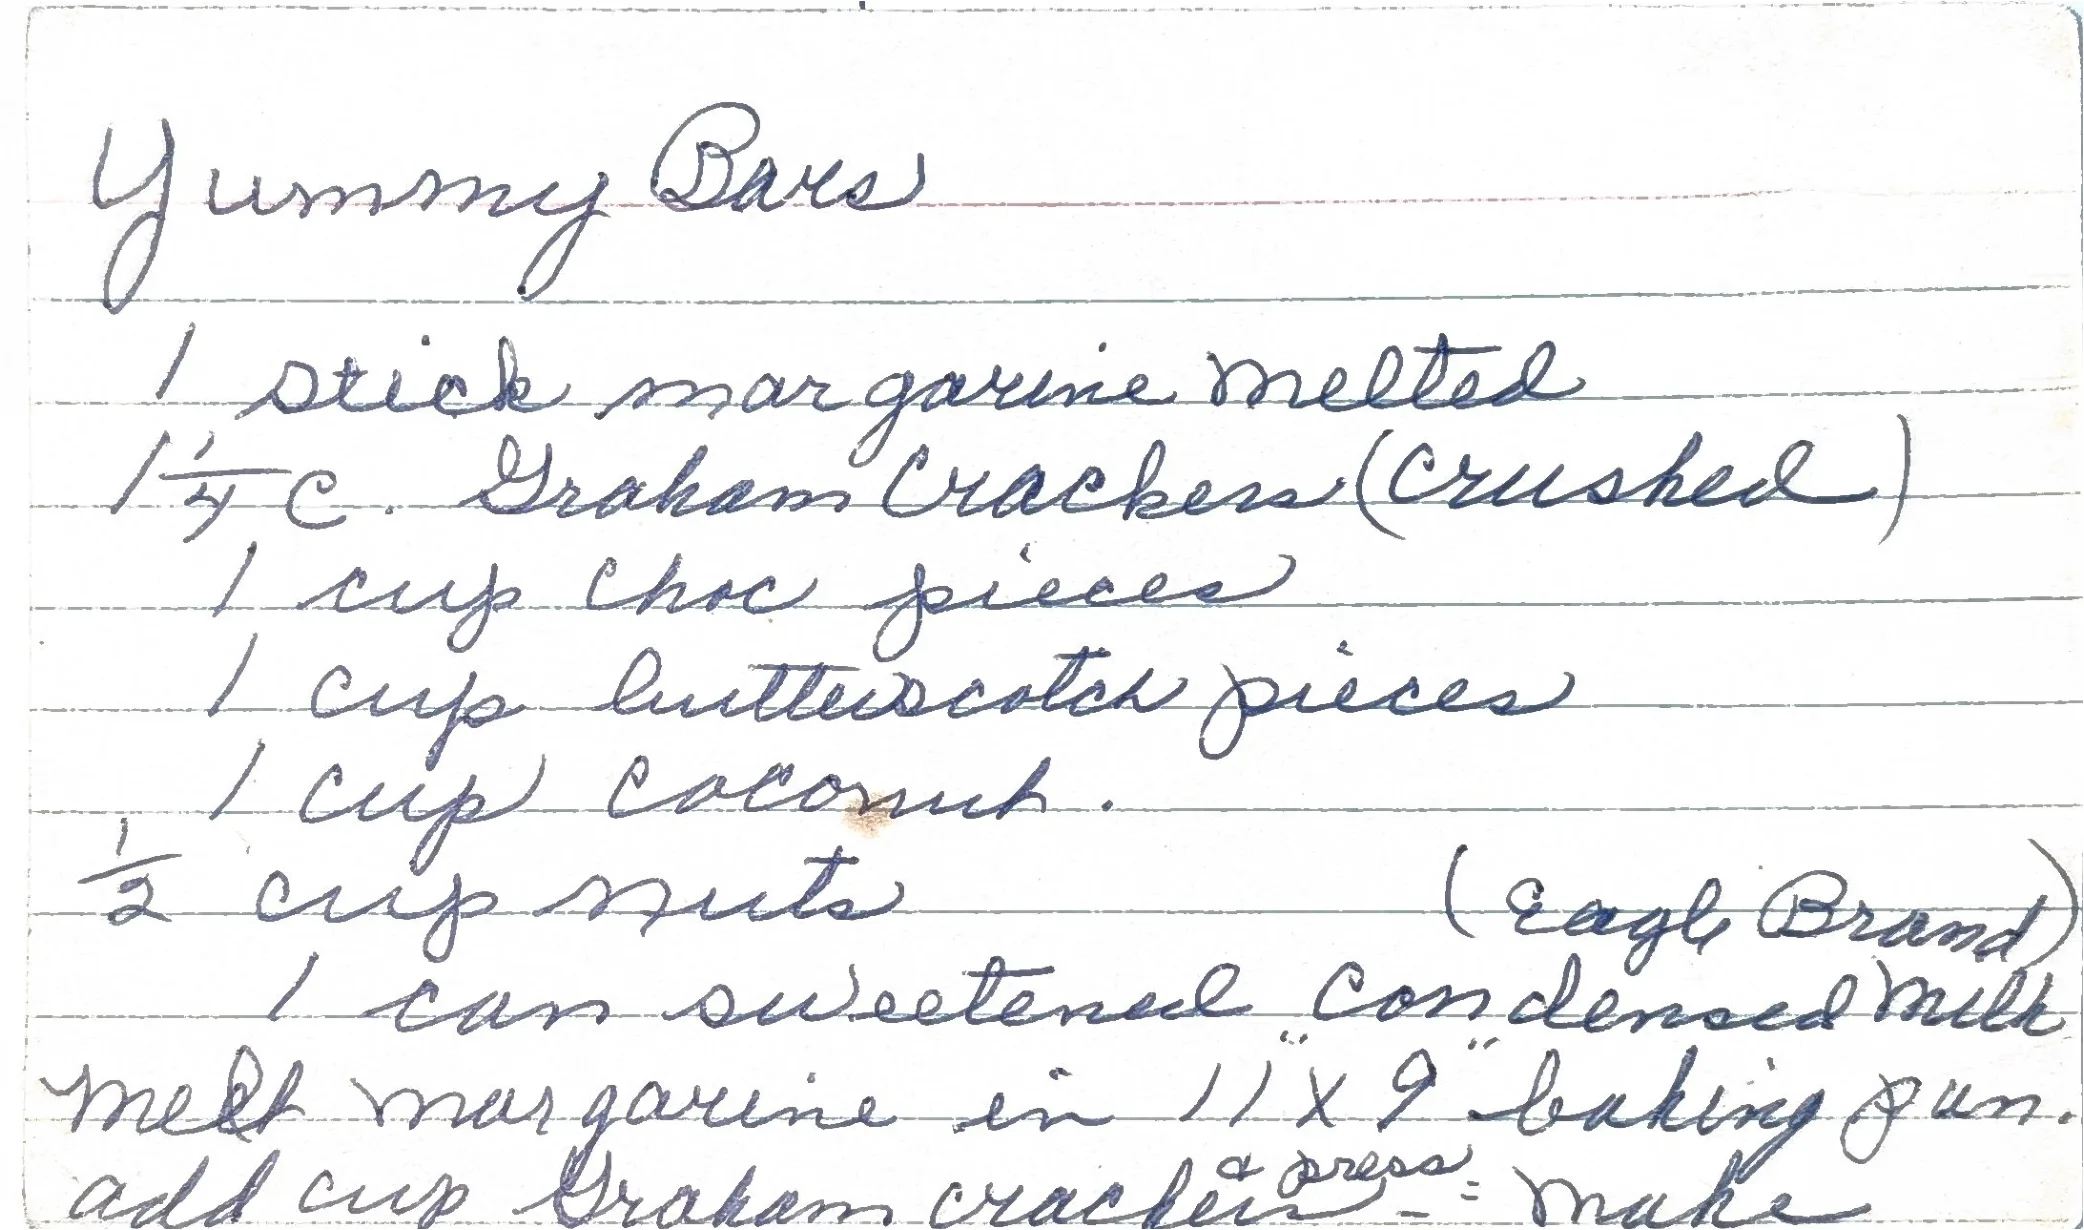 Yummy Bars
1 stick margarine melted
1 1/4 C. Graham Crackers (crushed)
1 cup choc pieces
1 cup butterscotch pieces
1 cup coconut.
1/2 cup nuts (Eagle Brand)
1 can sweetened condensed milk
melt margarine in 11" x 9" baking pan.
& press
add cup Graham crackers - make